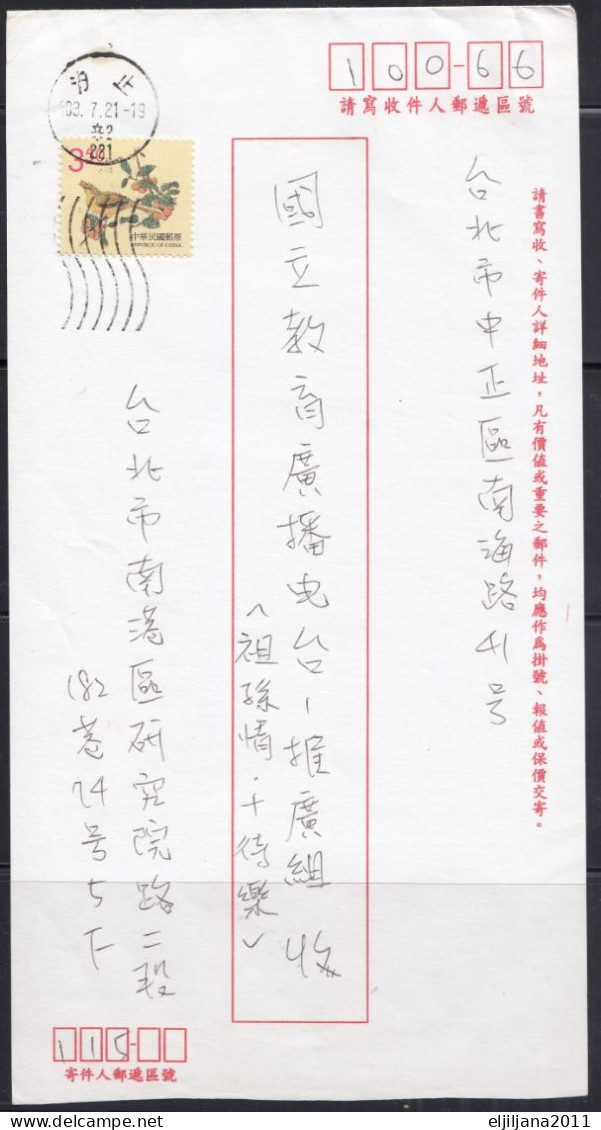 100-66
請寫收件人郵遞區號
請書寫收、寄件人詳細地址，凡有價值或重要之郵件，均應作爲掛號、報值或保價交寄。
台北市中正區南海路41号
國立教育廣播电台-推廣組 收
(祖孫情·十待樂)
台北市南港區研究院路二段
182巷74号5F
03.7.21-19
221
3
中華民國郵票
REPUBLIC OF CHINA
115-
寄件人郵遞區號
eljiljana2011